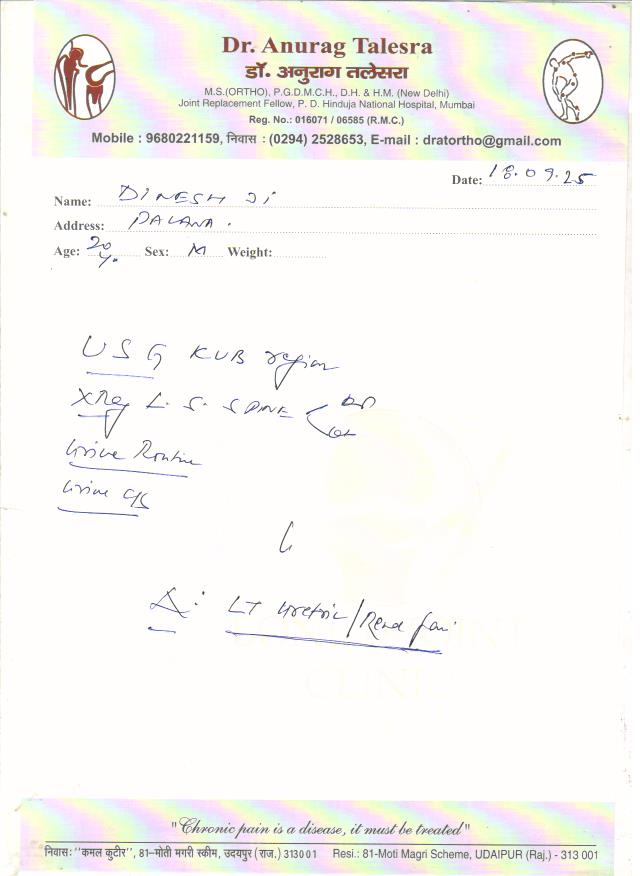 Dr. Anurag Talesra
डॉ. अनुराग तलेसरा
M.S.(ORTHO), P.G.D.M.C.H., D.H. & H.M. (New Delhi)
Joint Replacement Fellow, P. D. Hinduja National Hospital, Mumbai
Reg. No.: 016071 / 06585 (R.M.C.)
Mobile : 9680221159, निवास : (0294) 2528653, E-mail : dratortho@gmail.com
Date: 18.09.25
Name: DINESH Ji
Address: PALANA.
Age: 20 y. Sex: M Weight:
USG KUB region
XRay L. S. SPINE
Urine Routine
Urine C/S
Δ: LT Ureteric/Renal pain
CLINIC
"Chronic pain is a disease, it must be treated"
निवास: "कमल कुटीर", 81-मोती मगरी स्कीम, उदयपुर (राज.) 313001 Resi.: 81-Moti Magri Scheme, UDAIPUR (Raj.) - 313 001